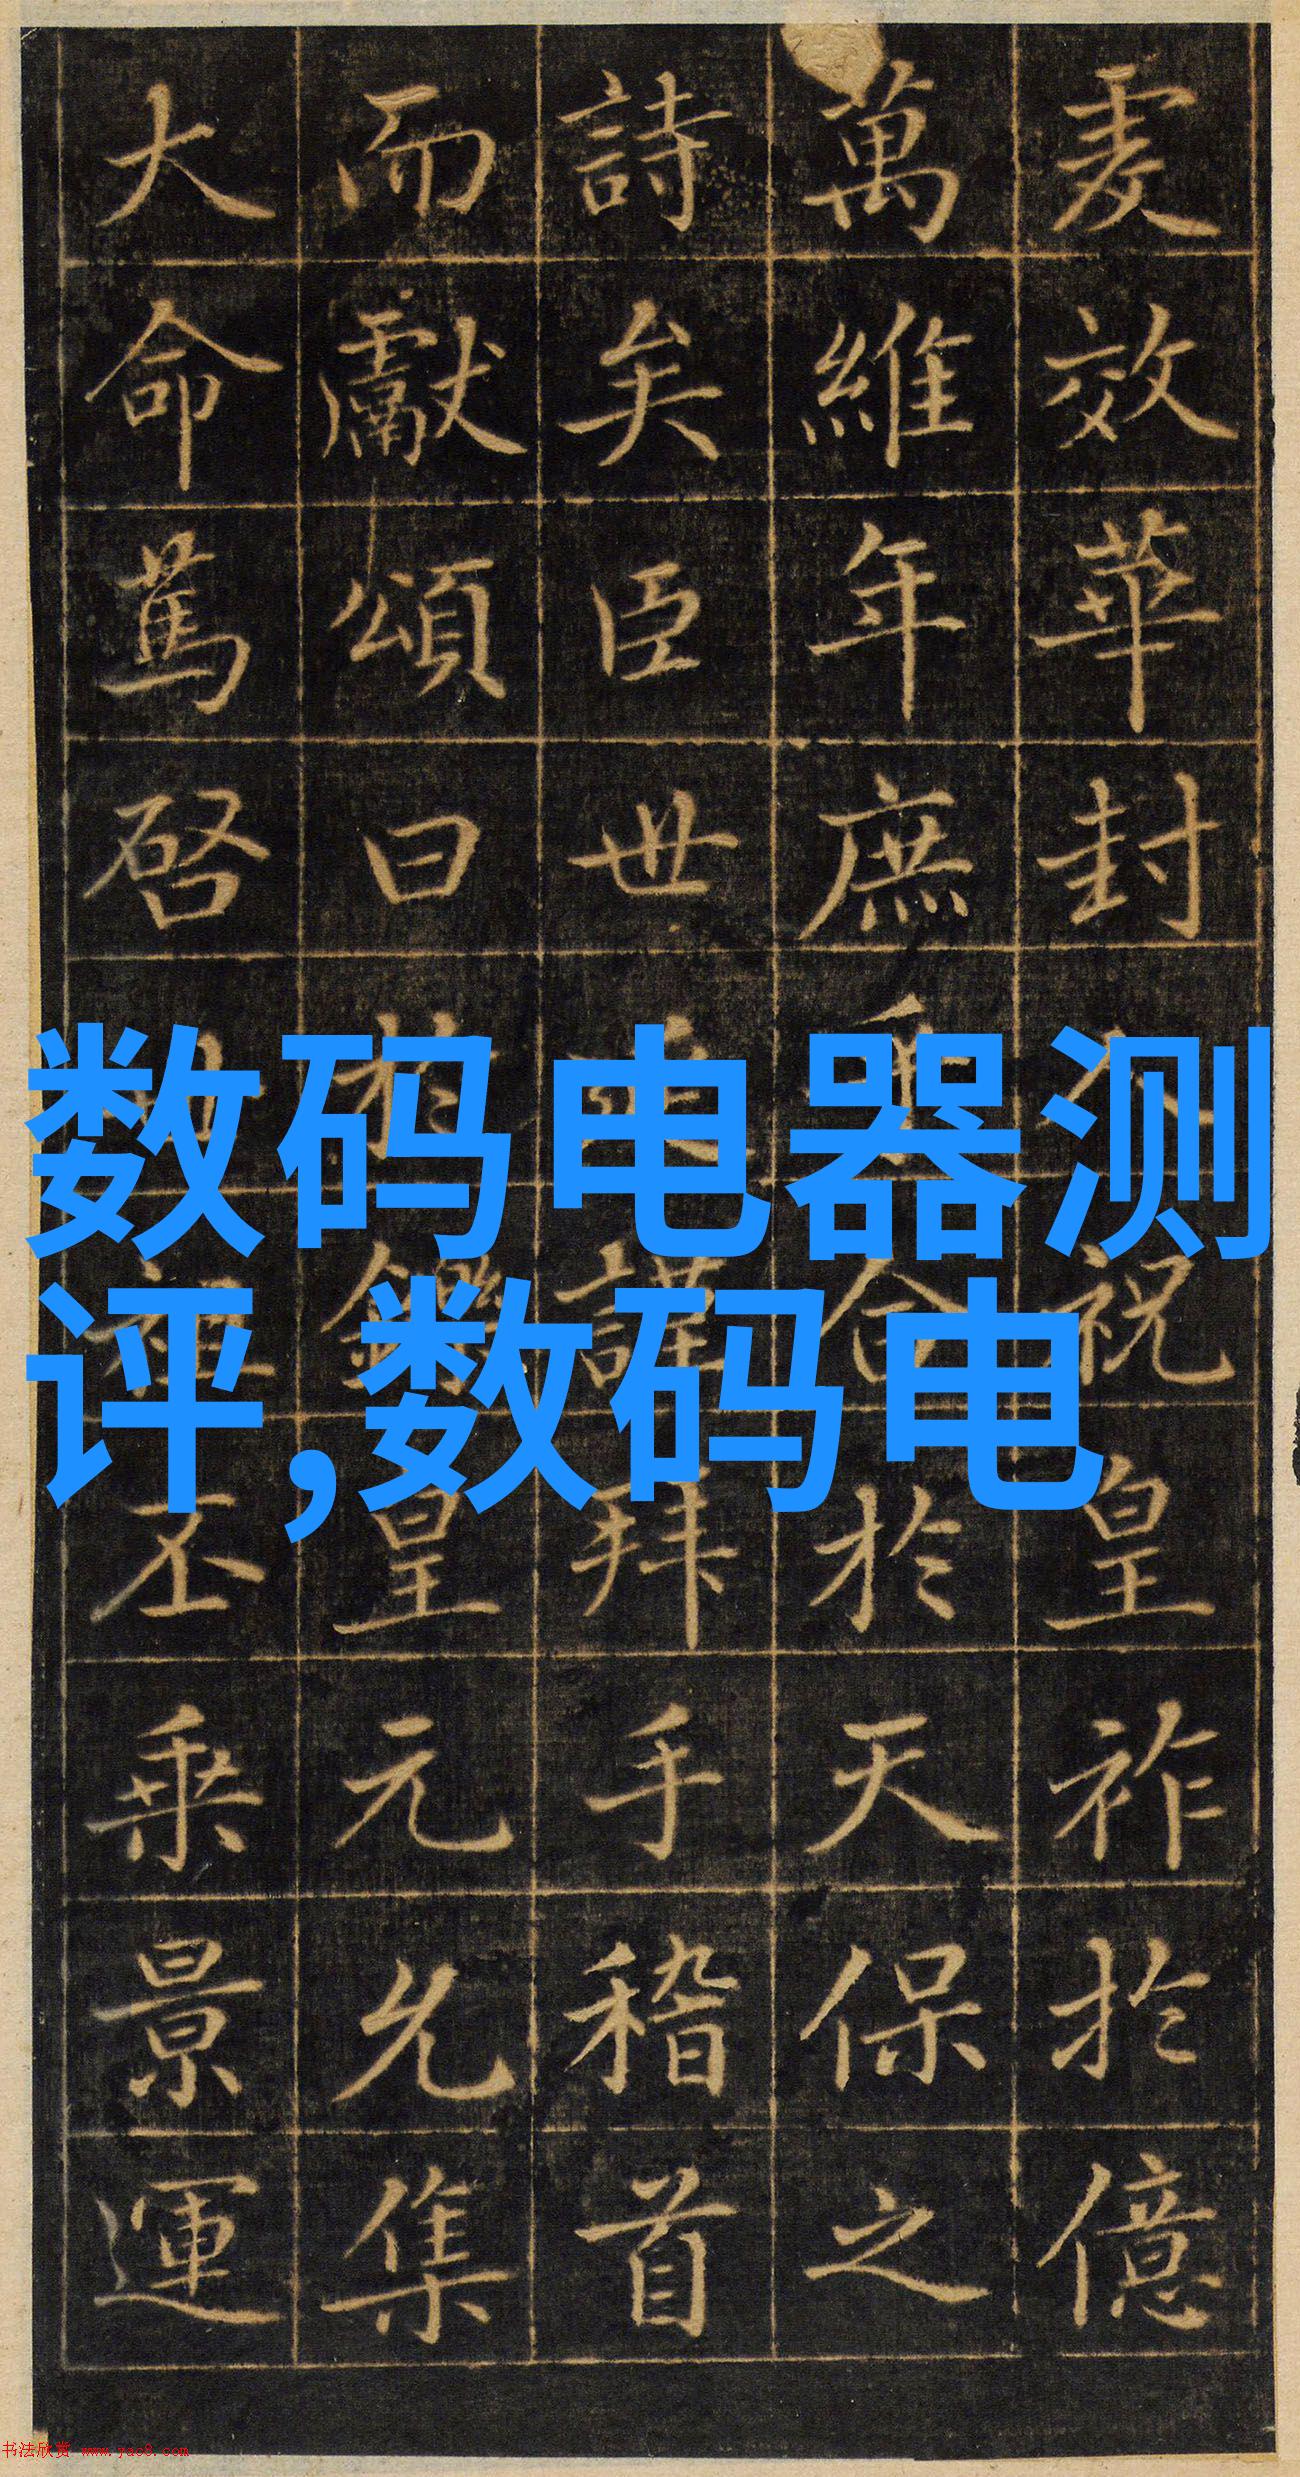 效華封人祝皇祚於億
萬維年庶乎合於天保之
詩矣臣世謹拜手稽首
而獻頌曰於鑠皇元允集
大命篤啓祖丕乘景運
数码电器测
评,数码电
书法欣赏 www.yac8.com